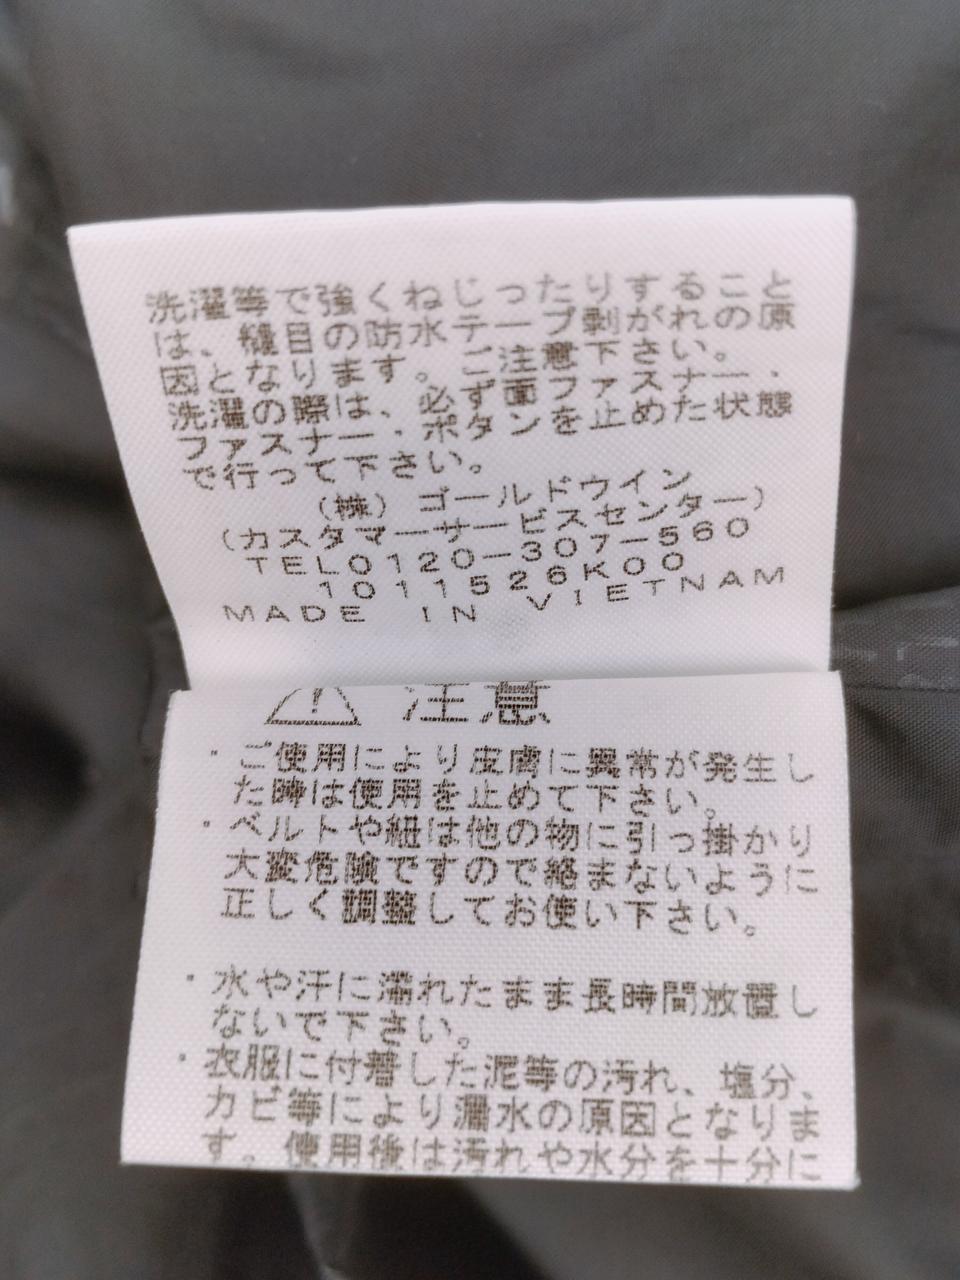 洗濯等で強くねじったりすること
は、縫目の防水テープ剥がれの原
因となります。ご注意下さい。
洗濯の際は、必ず面ファスナー・
ファスナー・ボタンを止めた状態
で行って下さい。
(株) ゴールドウイン
(カスタマーサービスセンター)
TEL0120-307-560
1011526K00
MADE IN VIETNAM
注意
・ご使用により皮膚に異常が発生し
た時は使用を止めて下さい。
・ベルトや紐は他の物に引っ掛かり
大変危険ですので絡まないように
正しく調整してお使い下さい。
・水や汗に濡れたまま長時間放置し
ないで下さい。
・衣服に付着した泥等の汚れ、塩分、
カビ等により漏水の原因となりま
す。使用後は汚れや水分を十分に